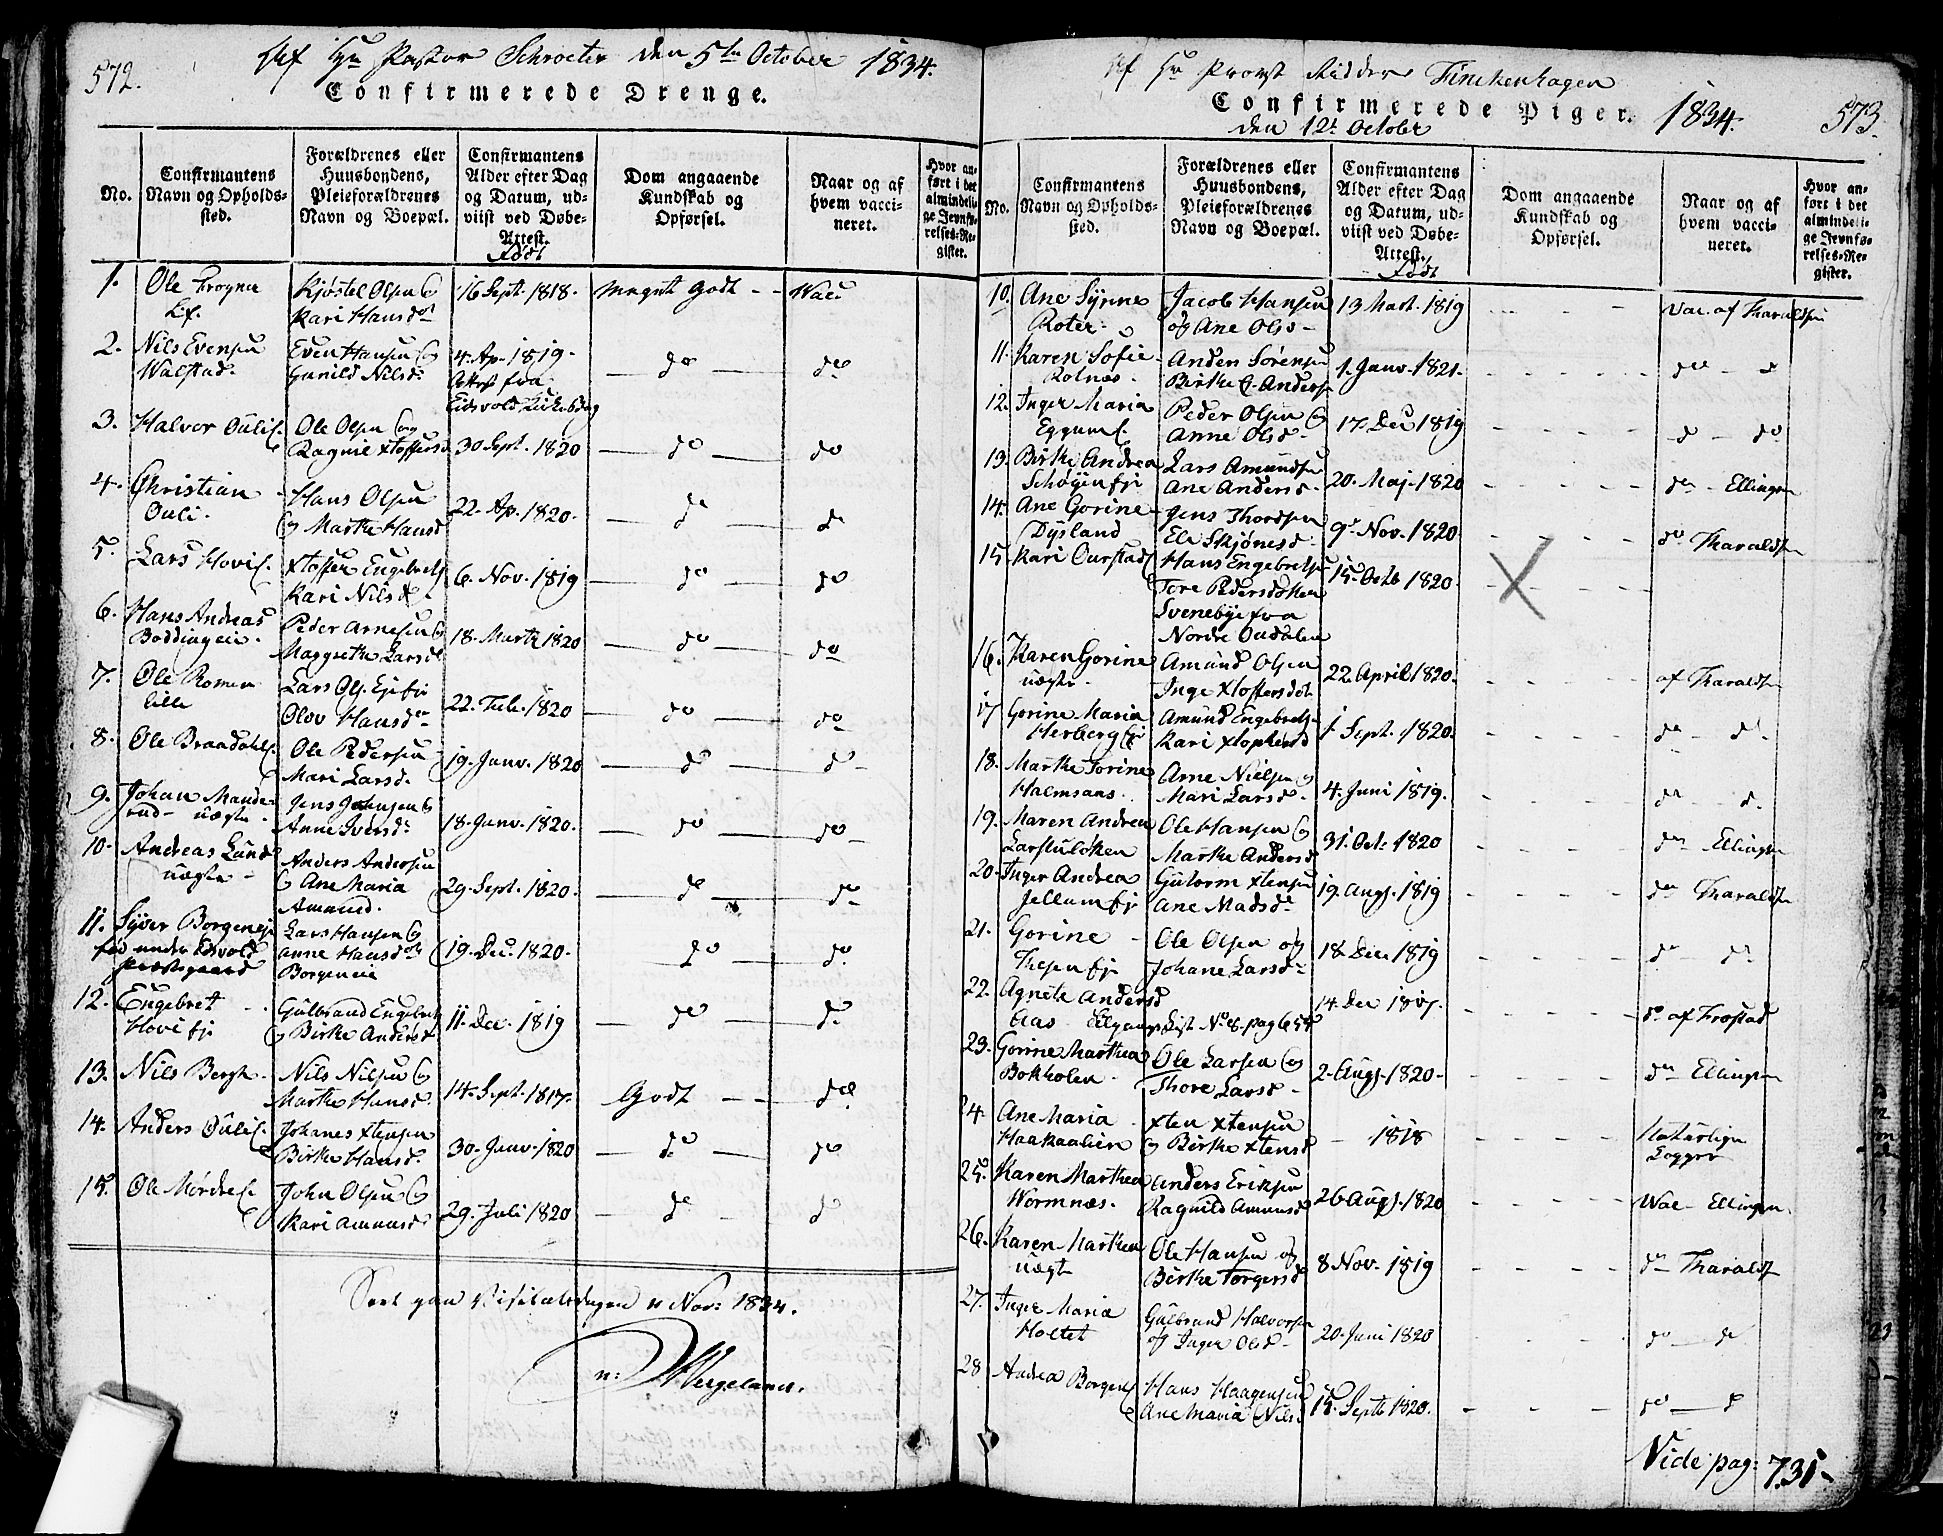 572.
Af Hr Pastor Schroeter den 5te October 1834.
Confirmerede Drenge.
No.
Confirmantens Navn og Opholdssted.
Forældrenes eller Huusbondens, Pleieforældrenes Navn og Boepæl.
Confirmantens Alder efter Dag og Datum, udviist ved Døbe-Attest.
Født
Dom angaaende Kundskab og Opførsel.
Naar og af hvem vaccineret.
Hvor anført i det almindelige Jevnførelses-Register.
1. Ole Frogner Kjøstel Olsen 16 Sept. 1818. Meget Godt - - Vacc
Kari Hansd
2. Nils Evensen Even Hansen 4. Ap. 1819. do do
Walstad. Gunild Nilsd
fra Eidsvold
3. Halvor Oulie Ole Olsen og 30 Sept. 1820 do do
Ragnie Xtoffersd
4. Christian Hans Olsen 22. Ap. 1820. do do
Ouli. og Marthe Hansd
5. Lars Hovie Xtoffer Engebrets 6. Nov. 1819 do do
Kari Nilsd
6. Hans Andreas Peder Arnesen 18. Marts 1820 do do
Boddingeie. Magrethe Larsd
7. Ole Romen Lars Ols. 22. Feb. 1820 do do
lille Olov Hansd
8. Ole Braadahl Ole Pedersen 19. Janv. 1820 do do
Mari Larsd.
9. Johan Mande- Jens Johnsen 18. Janv. 1820. do do
rud uægte Anne Iversd
10. Andreas Lund Anders Andersen 29. Sept. 1820. do do
uægte og Ane Maria
Amund.
11. Syver Borgeneie Lars Hansen 19. Dec. 1820. do do
fød under Edsvold Anne Hansd
Præstegaard Borgeneie
12. Engebret Gulbrand Engebret 11. Dec. 1819 do do
Hovi og Birthe Andersd
13. Nils Bergh Nils Nilsen 14. Sept. 1817. Godt - - do
Marthe Hansd
14. Anders Oulie Johanes Xtensen 30. Janv. 1820 do do
Birthe Hansd.
15. Ole Mørdre John Olsen 29. Juli 1820 do do
Kari Amunsd
Seet paa Visitatsdagen Nov: 1834.
N: Wergeland.
573.
Af Hr Provst Ridder Finckenhagen
Confirmerede Piger. 1834.
den 12t October
No.
Confirmantens Navn og Opholdssted.
Forældrenes eller Huusbondens, Pleieforældrenes Navn og Boepæl.
Confirmantens Alder efter Dag og Datum, udviist ved Døbe-Attest.
Født
Dom angaaende Kundskab og Opførsel.
Naar og af hvem vaccineret.
Hvor anført i det almindelige Jevnførelses-Register.
10. Ane Synne Jacob Hansen 13 Mart. 1819 Vac af Tharaldsen
Roter og Ane Ols
11. Karen Sofie Anden Sørensen 1. Janv. 1821. do - d
Rolnæs. Birthe Anders
12. Inger Maria Peder Olsen 17. Dec 1819 d - do
Eggum Anne Olsd
13. Birthe Andrea Lars Amundsen 20. Maj. 1820 do - Ellingsen
Schøyen Ane Andersd
14. Ane Gorine Jens Thordsen 9. Nov. 1820 do Tharaldsen
Dysland
15. Kari Ourstad Hans Engebretsen 15. Octb 1820.
Tore Pedersd
Svenebye fra
Nordre Oudalen
16. Karen Gorine Amund Olsen 22. April 1820. af Tharaldsen
uægte. Inge Xtoffersdot
17 Gorine Maria Amund Engebrets 1 Sept. 1820. do - d
Herberg Kari Xtophersd
18. Marthe Torine Arne Nielsen 4. Juni 1819. do d.
Halmsaas. Mari Larsd
19. Maren Andrea Ole Hansen 31. Oct. 1820 do Ellingsen
Larstuløken Marthe Andersd
20. Inger Andrea Gutorm Xtensen 19. Augs. 1819 do Tharaldsen
Jellum Ane Madsd
21. Gorine Ole Olsen og 18 Dec 1819 do - d
Thesen Johane Larsd
22. Agnete Andersd 14. Dec 1817. do af Frøstad
Aas List No 8. pag 655
23. Gorine Marthea Ole Larsen 2. Augs. 1820. do Ellingsen
Bokholen. Thore Larsd
24. Ane Maria Xten Xtensen 1818 Naturlige
Haakaalien og Birthe Xtensd Kopper
25. Karen Marthea Anders Eriksen 26 Augs. 1820 Vac Ellingsen.
Wormnæs. Ragnild Amunsd
26. Karen Marthea Ole Hansen og 8 Nov. 1819 do Tharaldsen
uægt Birthe Torgersd
27. Inger Maria Gulbrand Halvorsen 20. Juni 1820 do - d
Holtet og Inger Olsd
28 Andrea Borgen Hans Haagensen 15. Septb 1820. do - d
Ane Maria Nils.
Vide pag: 731.